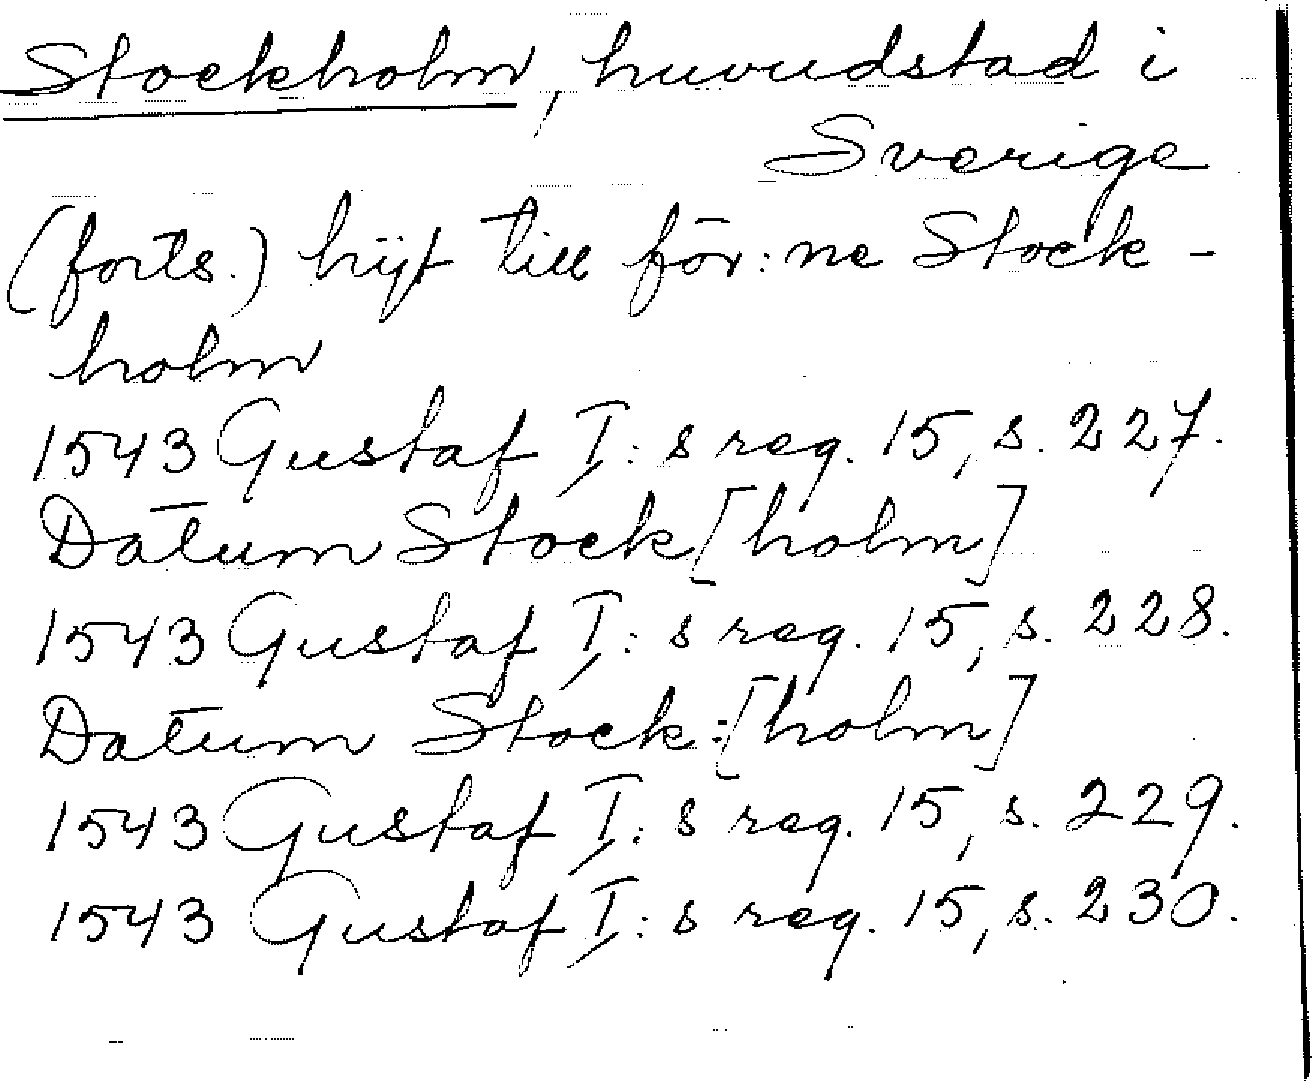 Stockholm, huvudstad i
Sverige
(forts.) hijt till för:ne Stock-
holm
1543 Gustaf I:s reg. 15, s. 227.
Datum Stock[holm]
1543 Gustaf I:s reg. 15, s. 228.
Datum Stock:[holm]
1543 Gustaf I:s reg. 15, s. 229.
1543 Gustaf I:s reg. 15, s. 230.